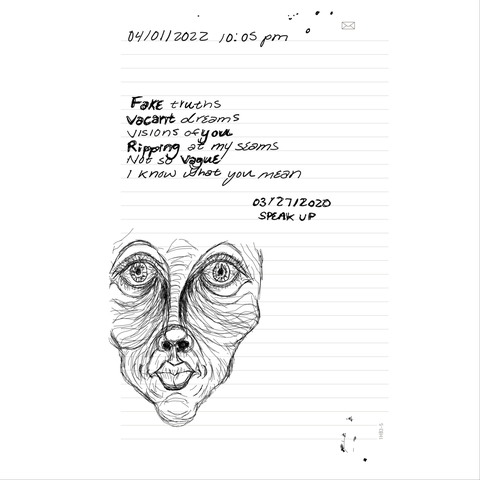 04/01/2022 10:05 pm
Fake truths
vacant dreams
visions of you
Ripping at my seams
Not so vague
I know what you mean
03/27/2020
SPEAK UP